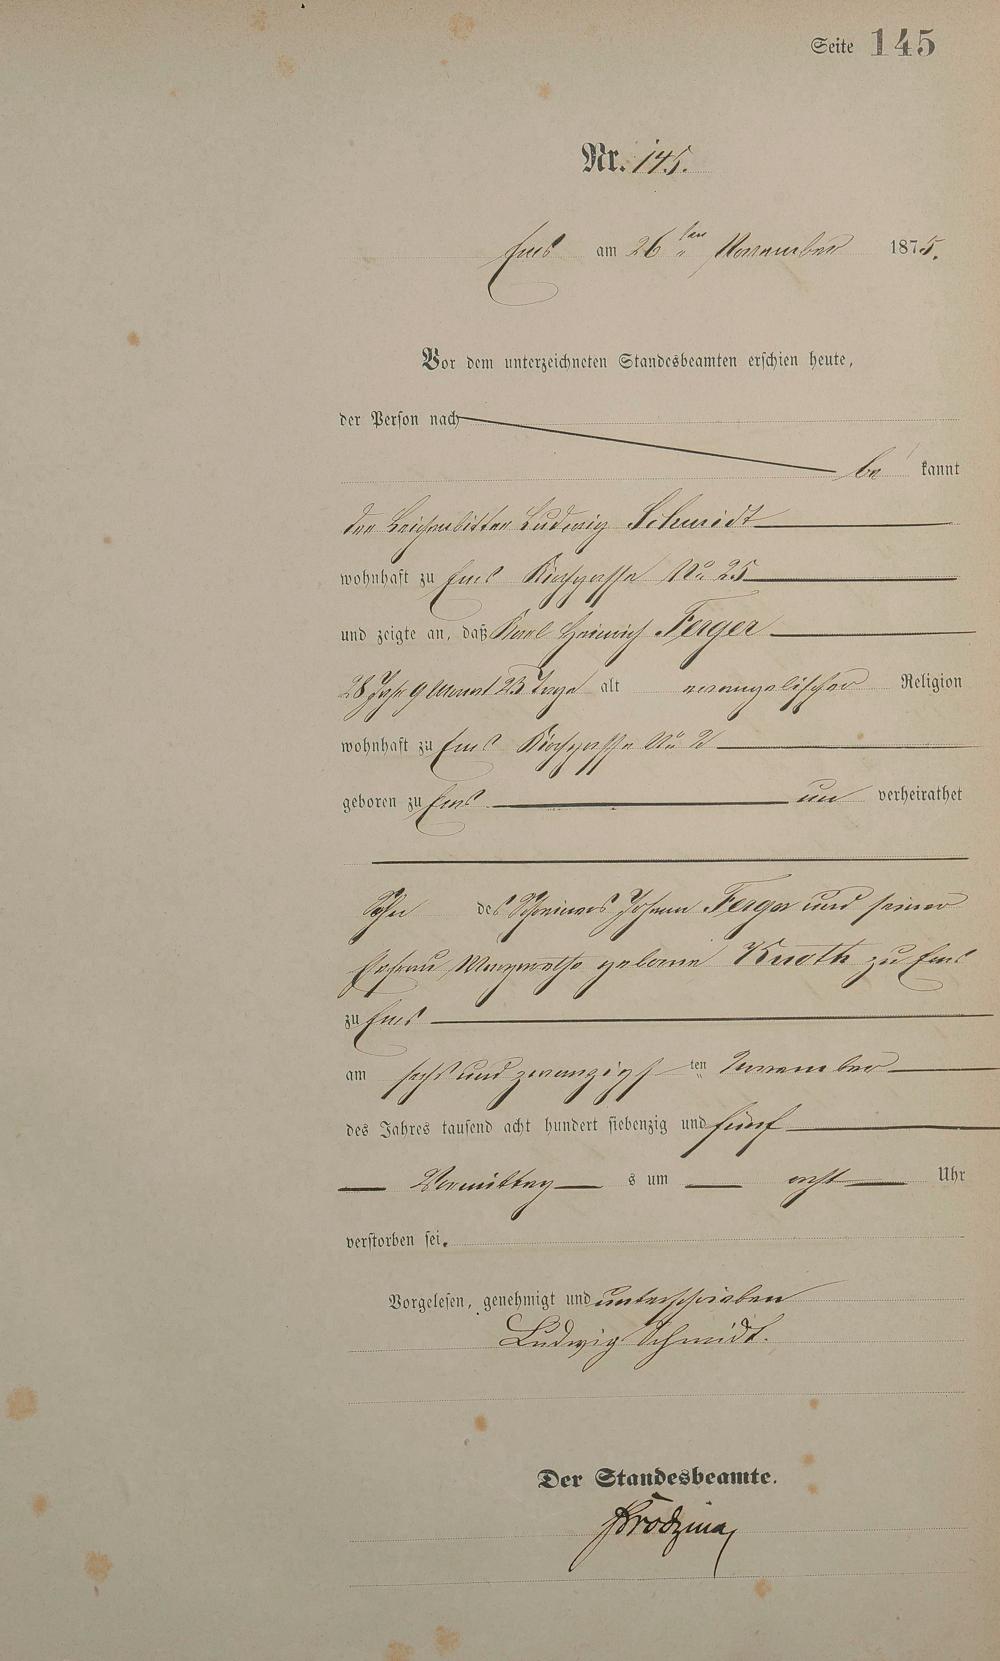 Seite 145
Nr. 145.
Ems am 26ten November 1875.
Vor dem unterzeichneten Standesbeamten erschien heute,
der Person nach
be kannt
der Leichenbitter Ludwig Schmidt
wohnhaft zu Ems Kirchgasse No 25
und zeigte an, daß Karl Heinrich Ferger
28 Jahr 9 Monat 23 Tage alt evangelischer Religion
wohnhaft zu Ems Kirchgasse No 2
geboren zu Ems un verheirathet
Sohn des Schreiners Johann Ferger und seiner
Ehefrau Margarethe geborne Knoth zu Ems
zu Ems
am sechs und zwanzigsten November
des Jahres tausend acht hundert siebenzig und fünf
Vormittag s um acht Uhr
verstorben sei.
Vorgelesen, genehmigt und unterschrieben
Ludwig Schmidt.
Der Standesbeamte.